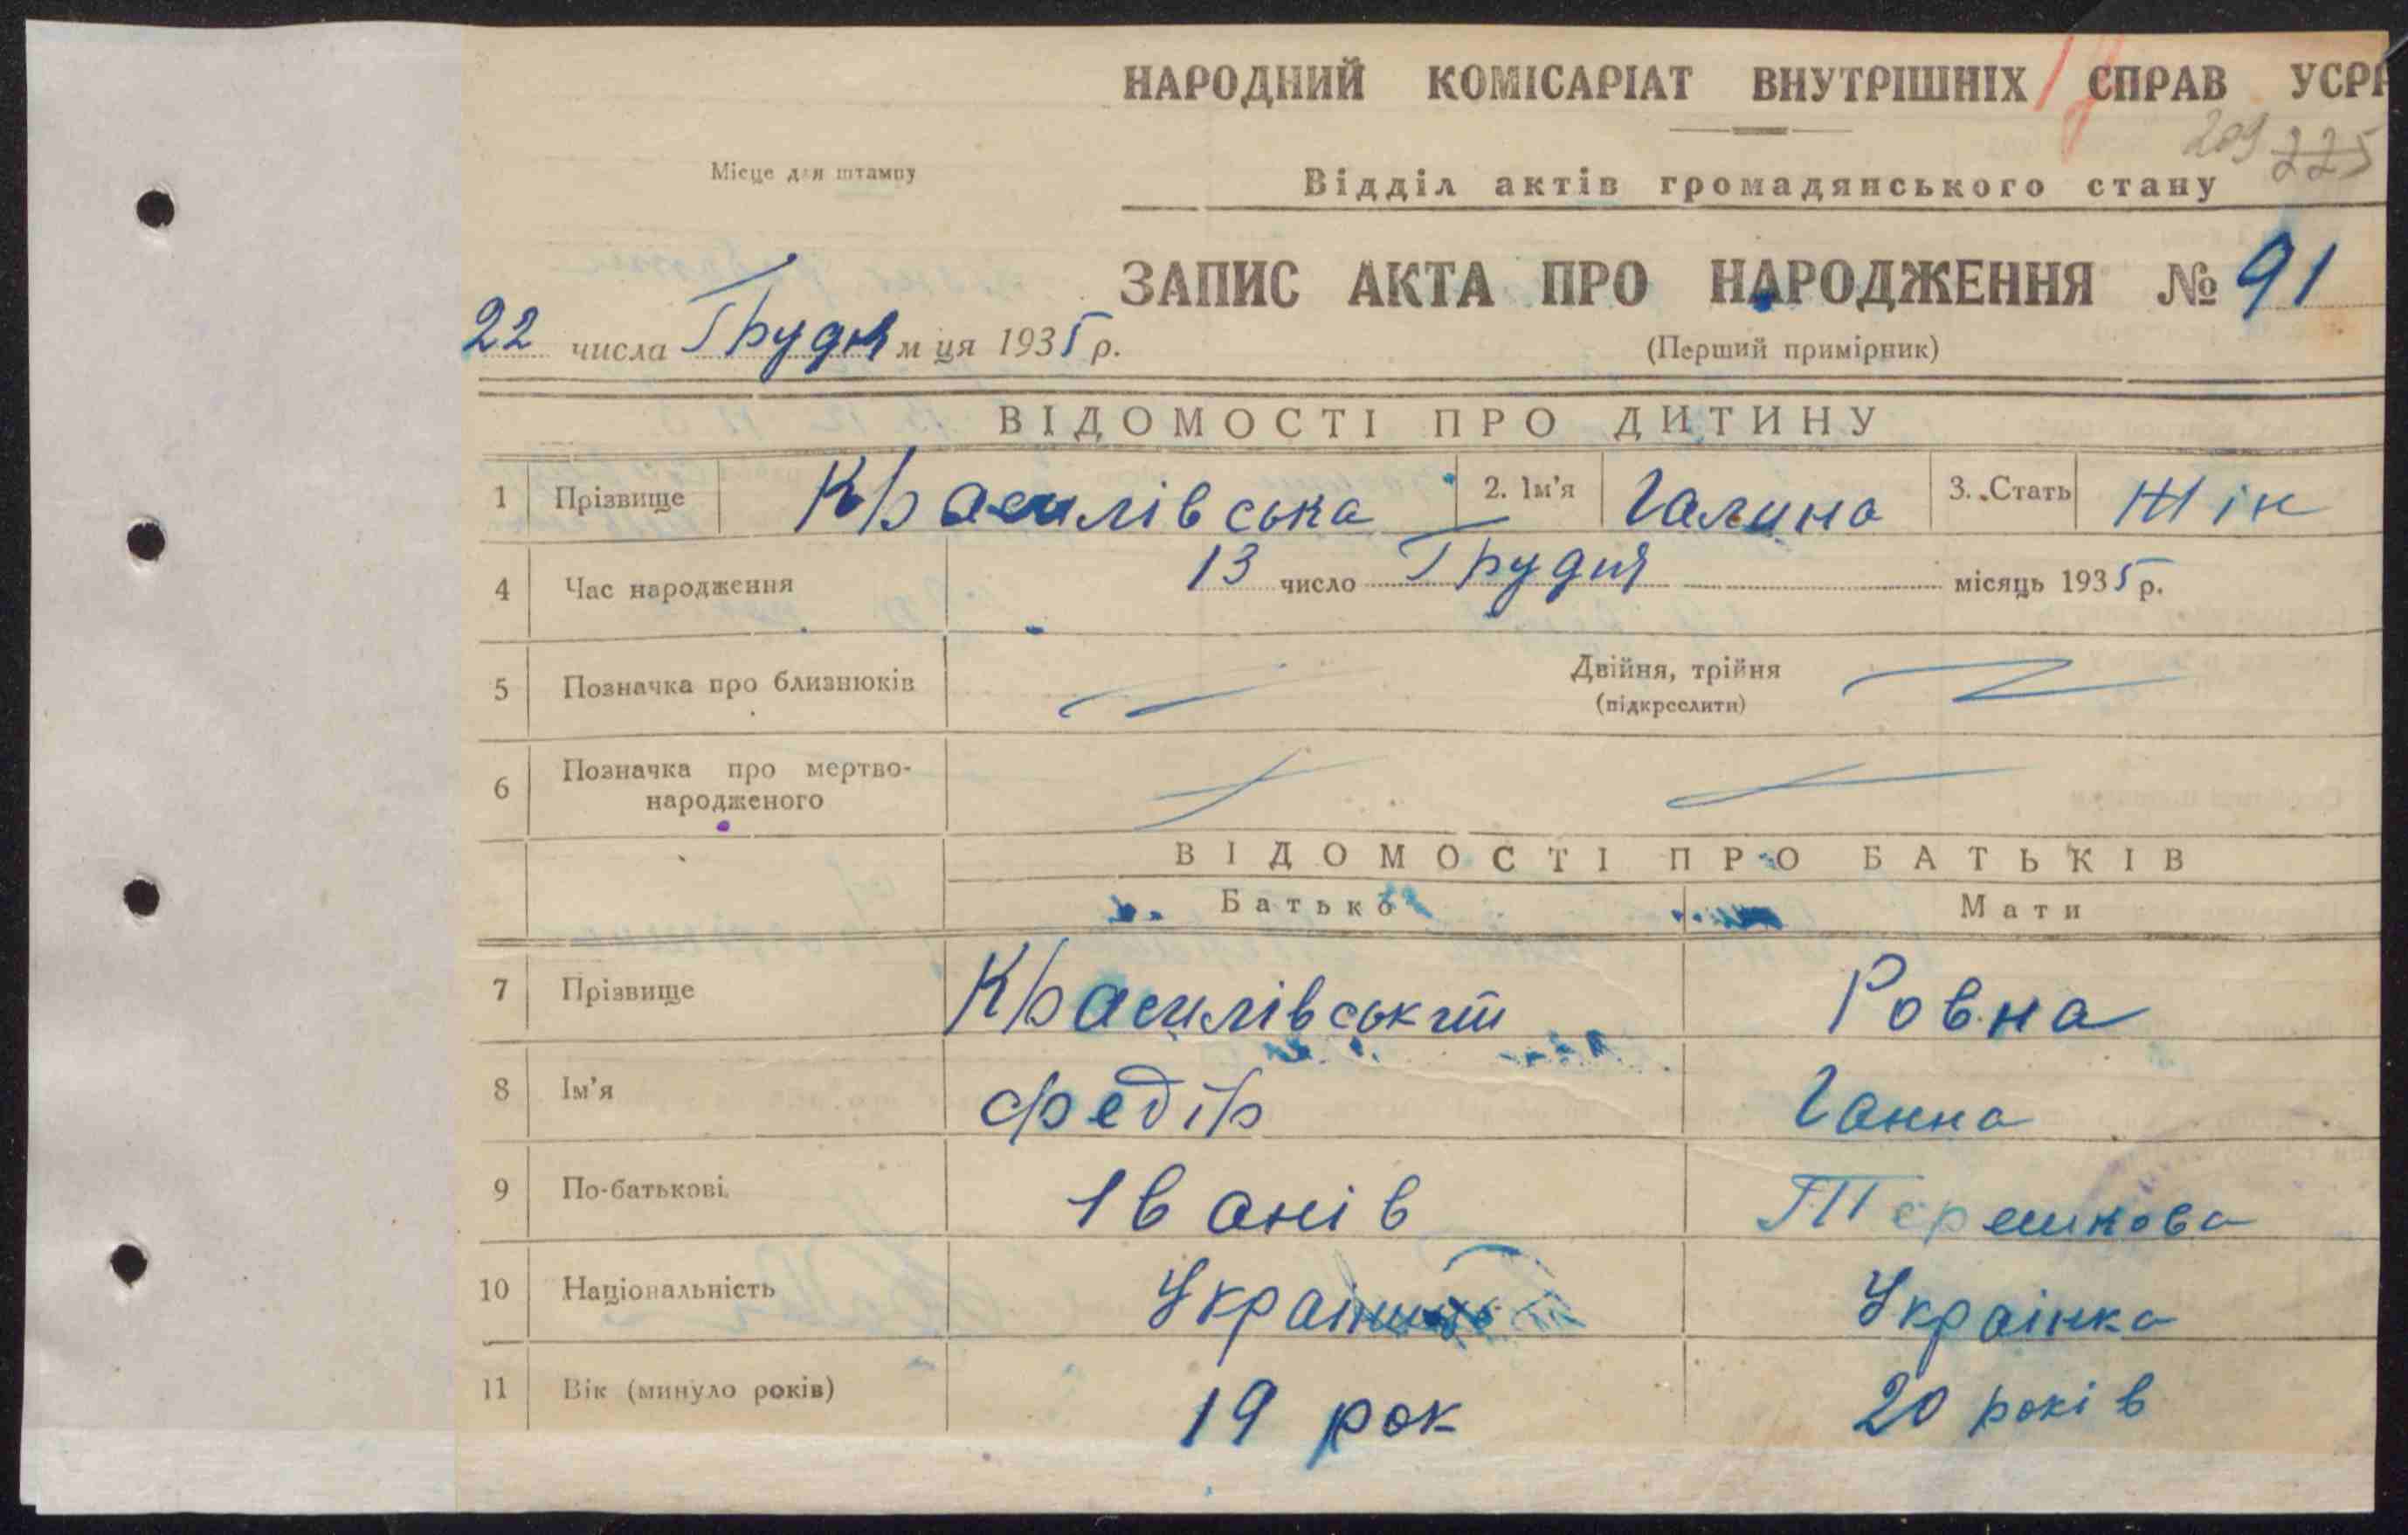 НАРОДНИЙ КОМІСАРІАТ ВНУТРІШНІХ СПРАВ УСРР
209 225
Місце для штампу
Відділ актів громадянського стану
ЗАПИС АКТА ПРО НАРОДЖЕННЯ № 91
22 числа Грудня м ця 1935 р.
(Перший примірник)
ВІДОМОСТІ ПРО ДИТИНУ
1 Прізвище Красилівська 2. Ім'я Галина 3. Стать Жін
4 Час народження 13 число Грудня місяць 1935 р.
5 Позначка про близнюків Двійня, трійня
(підкреслити)
6 Позначка про мертво-
народженого
ВІДОМОСТІ ПРО БАТЬКІВ
Батько Мати
7 Прізвище Красилівський Ровна
8 Ім'я Федір Ганна
9 По-батькові Іванів Терешкова
10 Національність Українець Українка
11 Вік (минуло років) 19 рок 20 років